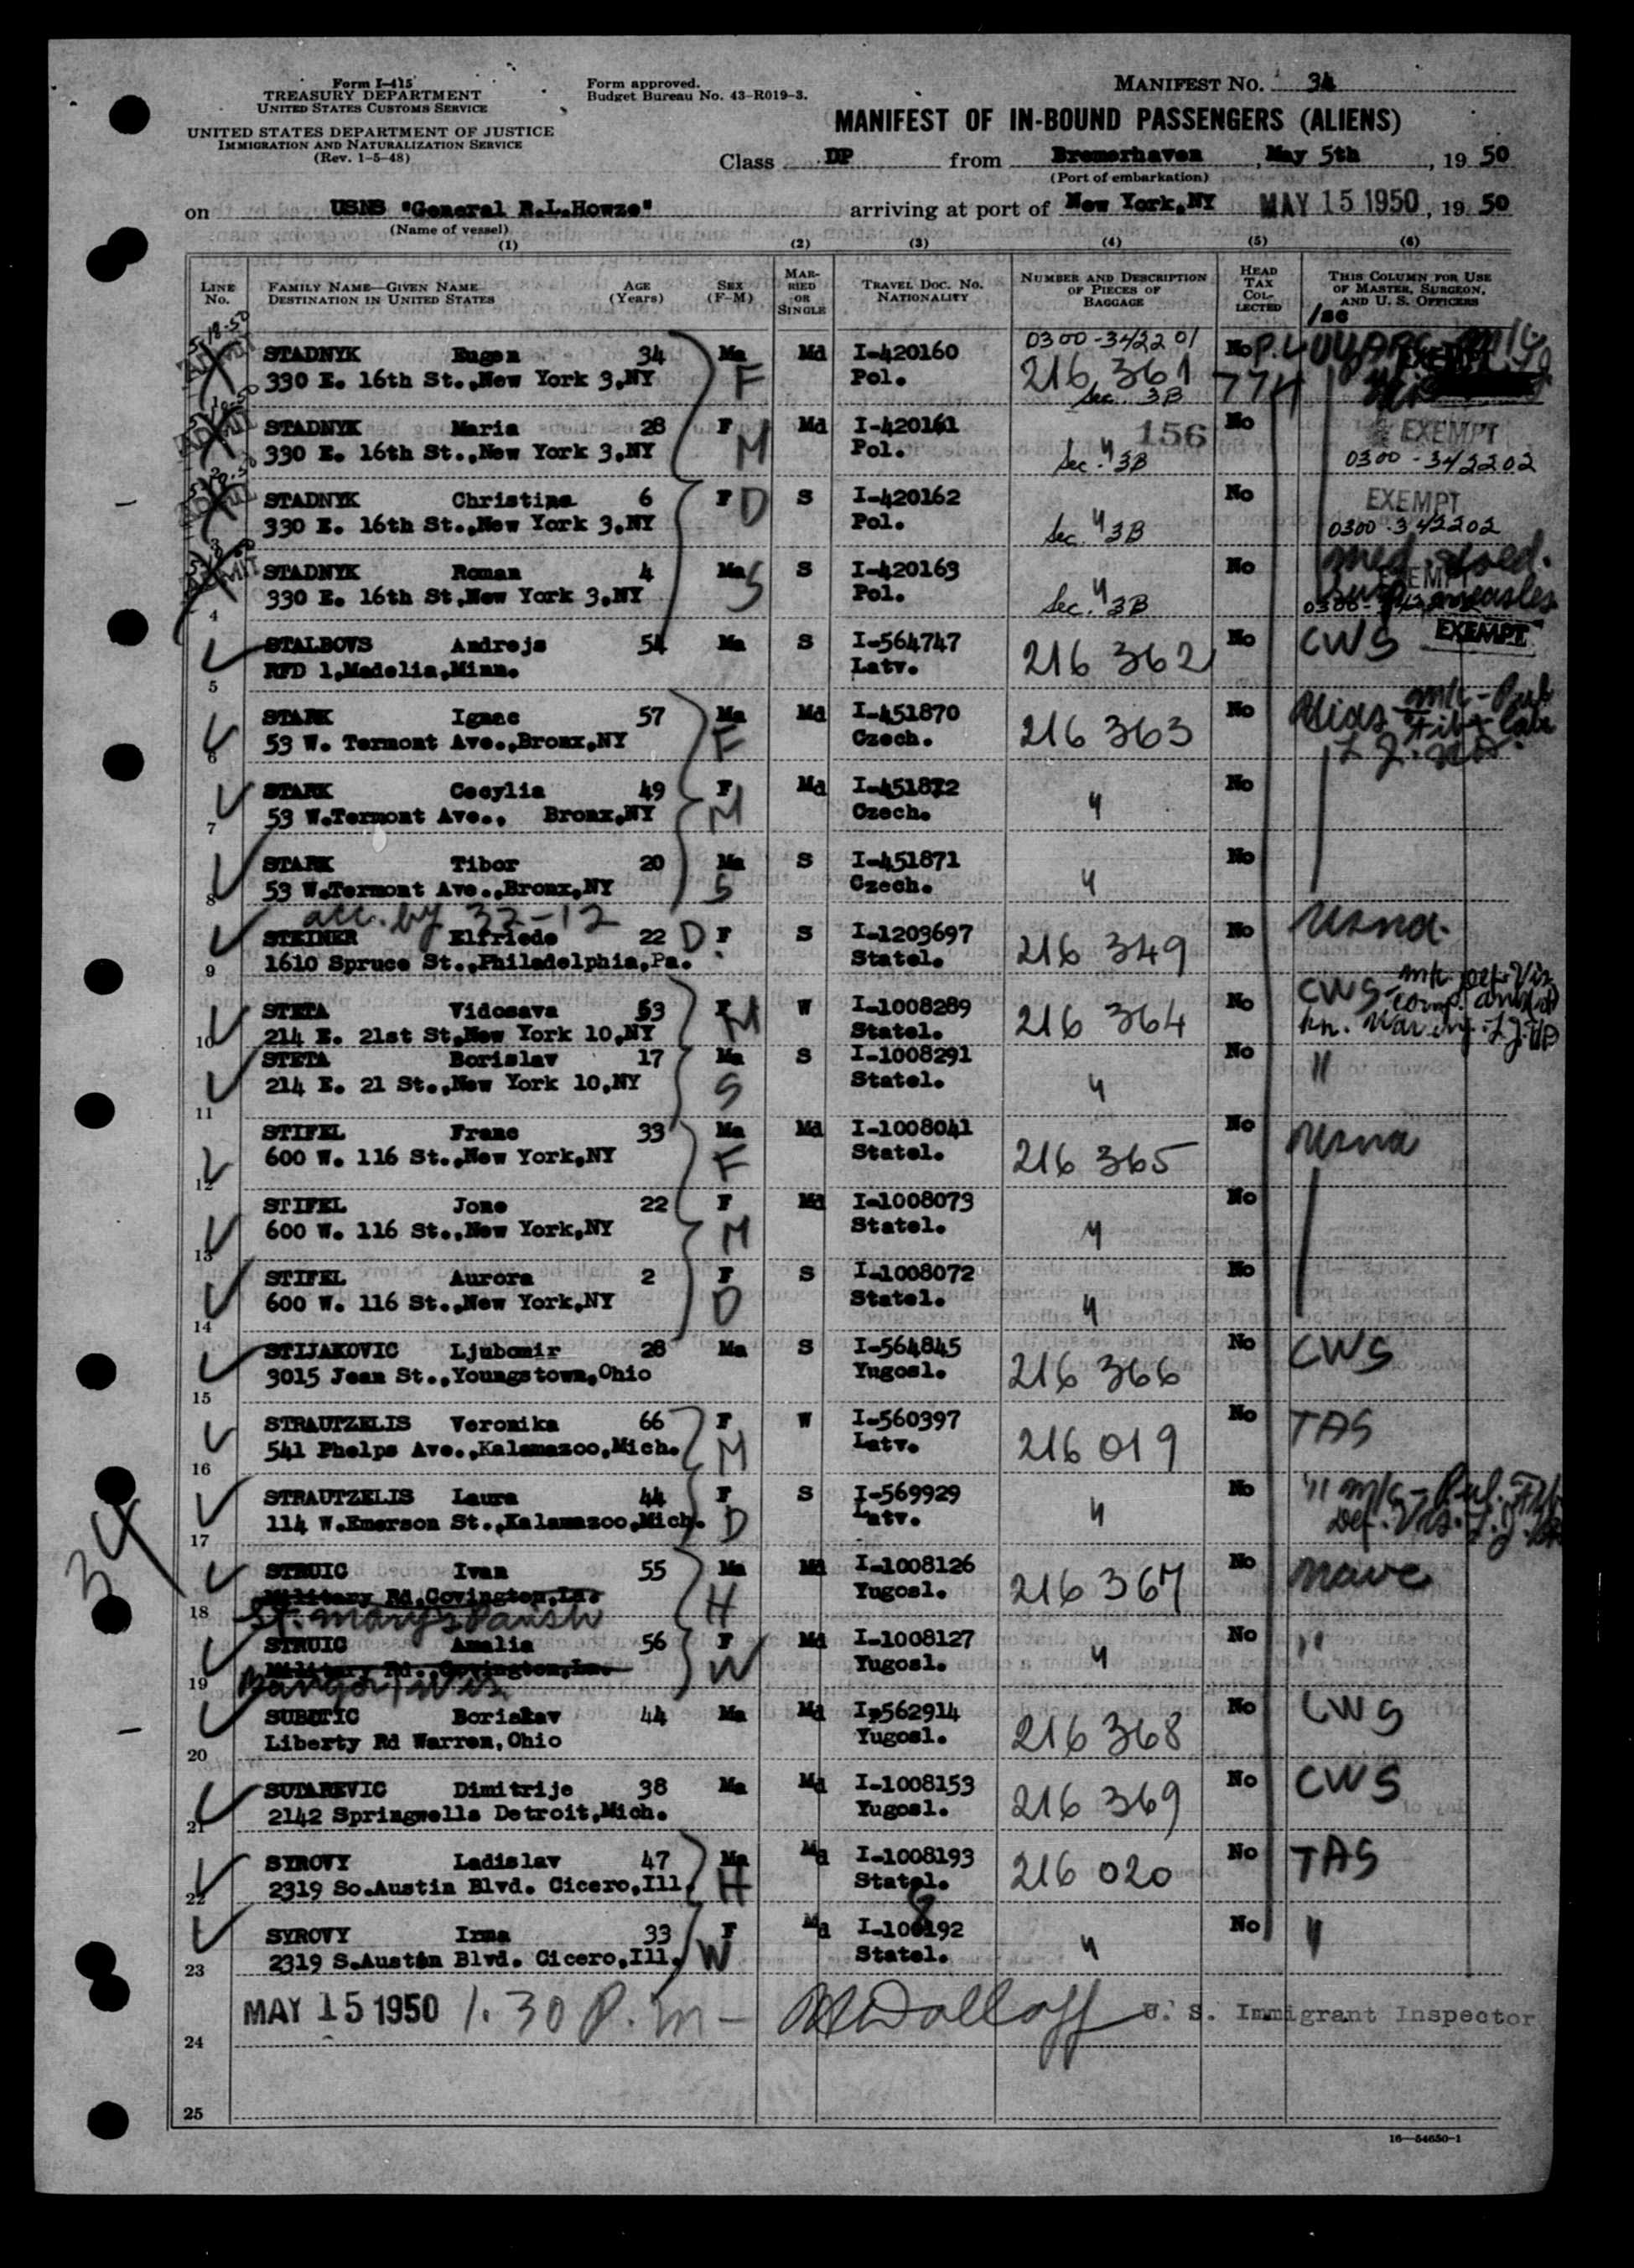 Form I-415
TREASURY DEPARTMENT
UNITED STATES CUSTOMS SERVICE
UNITED STATES DEPARTMENT OF JUSTICE
IMMIGRATION AND NATURALIZATION SERVICE
(Rev. 1-5-48)
Form approved.
Budget Bureau No. 43-R019-3.
MANIFEST NO. 34
MANIFEST OF IN-BOUND PASSENGERS (ALIENS)
Class DP from Bremerhaven, May 5th, 19 50
(Port of embarkation)
on USNS "General R.L.Howze" arriving at port of New York,NY MAY 15 1950, 19 50
(Name of vessel)
(1) (2) (3) (4) (5) (6)
LINE No. FAMILY NAME—GIVEN NAME DESTINATION IN UNITED STATES AGE (Years) SEX (F-M) MARRIED OR SINGLE TRAVEL DOC. NO. NATIONALITY NUMBER AND DESCRIPTION OF PIECES OF BAGGAGE HEAD TAX COLLECTED THIS COLUMN FOR USE OF MASTER, SURGEON, AND U. S. OFFICERS
0300-342201
STADNYK Eugen 34 Ma Md I-420160 No
330 E. 16th St.,New York 3,NY F Pol. 216 361
Sec. 3B
STADNYK Maria 28 F Md I-420161 156 No EXEMPT
330 E. 16th St.,New York 3,NY M Pol. Sec. 3B 0300-342202
STADNYK Christina 6 F D S I-420162 No EXEMPT
330 E. 16th St.,New York 3,NY Pol. Sec. 3B 0300-342202
STADNYK Roman 4 Ma S S I-420163 No
4 330 E. 16th St,New York 3,NY Pol. Sec. 3B measles
STALBOVS Andrejs 54 Ma S I-564747 216 362 No CWS EXEMPT
5 RFD 1,Madelia,Minn. Latv.
STARK Ignac 57 Ma Md I-451870 216 363 No
6 53 W. Termont Ave.,Bronx,NY F Czech.
STARK Cecylia 49 F Md I-451872 " No
7 53 W.Termont Ave., Bronx,NY M Czech.
STARK Tibor 20 Ma S I-451871 " No
8 53 W.Termont Ave.,Bronx,NY S Czech.
acc. by 32-12
STEINER Elfriede 22 D F S I-1203697 216 349 No usna.
9 1610 Spruce St.,Philadelphia,Pa. Statel.
STETA Vidosava 53 F W I-1008289 216 364 No CWS
10 214 E. 21st St,New York 10,NY M Statel.
STETA Borislav 17 Ma S I-1008291 " No "
11 214 E. 21 St.,New York 10,NY S Statel.
STIFEL Franc 33 Ma Md I-1008041 216 365 No usna
12 600 W. 116 St.,New York,NY F Statel.
STIFEL Jone 22 F Md I-1008073 " No
13 600 W. 116 St.,New York,NY M Statel.
STIFEL Aurora 2 F S I-1008072 " No
14 600 W. 116 St.,New York,NY D Statel.
STIJAKOVIC Ljubomir 28 Ma S I-564845 216 366 No CWS
15 3015 Jean St.,Youngstown,Ohio Yugosl.
STRAUTZELIS Veronika 66 F W I-560397 216 019 No TAS
16 541 Phelps Ave.,Kalamazoo,Mich. M Latv.
STRAUTZELIS Laura 44 F S I-569929 " No "
17 114 W.Emerson St.,Kalamazoo,Mich. D Latv.
STRUIC Ivan 55 Ma Md I-1008126 216 367 No
18 Military Rd,Covington,La. H Yugosl.
St. Mary's Parish
STRUIC Amalia 56 F Md I-1008127 " No "
19 Military Rd.,Covington,La. W Yugosl.
Bangor, Wis.
SUBOTIC Borislav 44 Ma Md I-562914 216 368 No CWS
20 Liberty Rd Warren,Ohio Yugosl.
SUTAREVIC Dimitrije 38 Ma Md I-1008153 216 369 No CWS
21 2142 Springwells Detroit,Mich. Yugosl.
SYROVY Ladislav 47 Ma Md I-1008193 216 020 No TAS
22 2319 So.Austin Blvd. Cicero,Ill. H Statel.
SYROVY Irma 33 F Md I-1008192 " No "
23 2319 S.Austin Blvd. Cicero,Ill. W Statel.
MAY 15 1950 1.30 P.m- U. S. Immigrant Inspector
24
25
34
16—54650-1